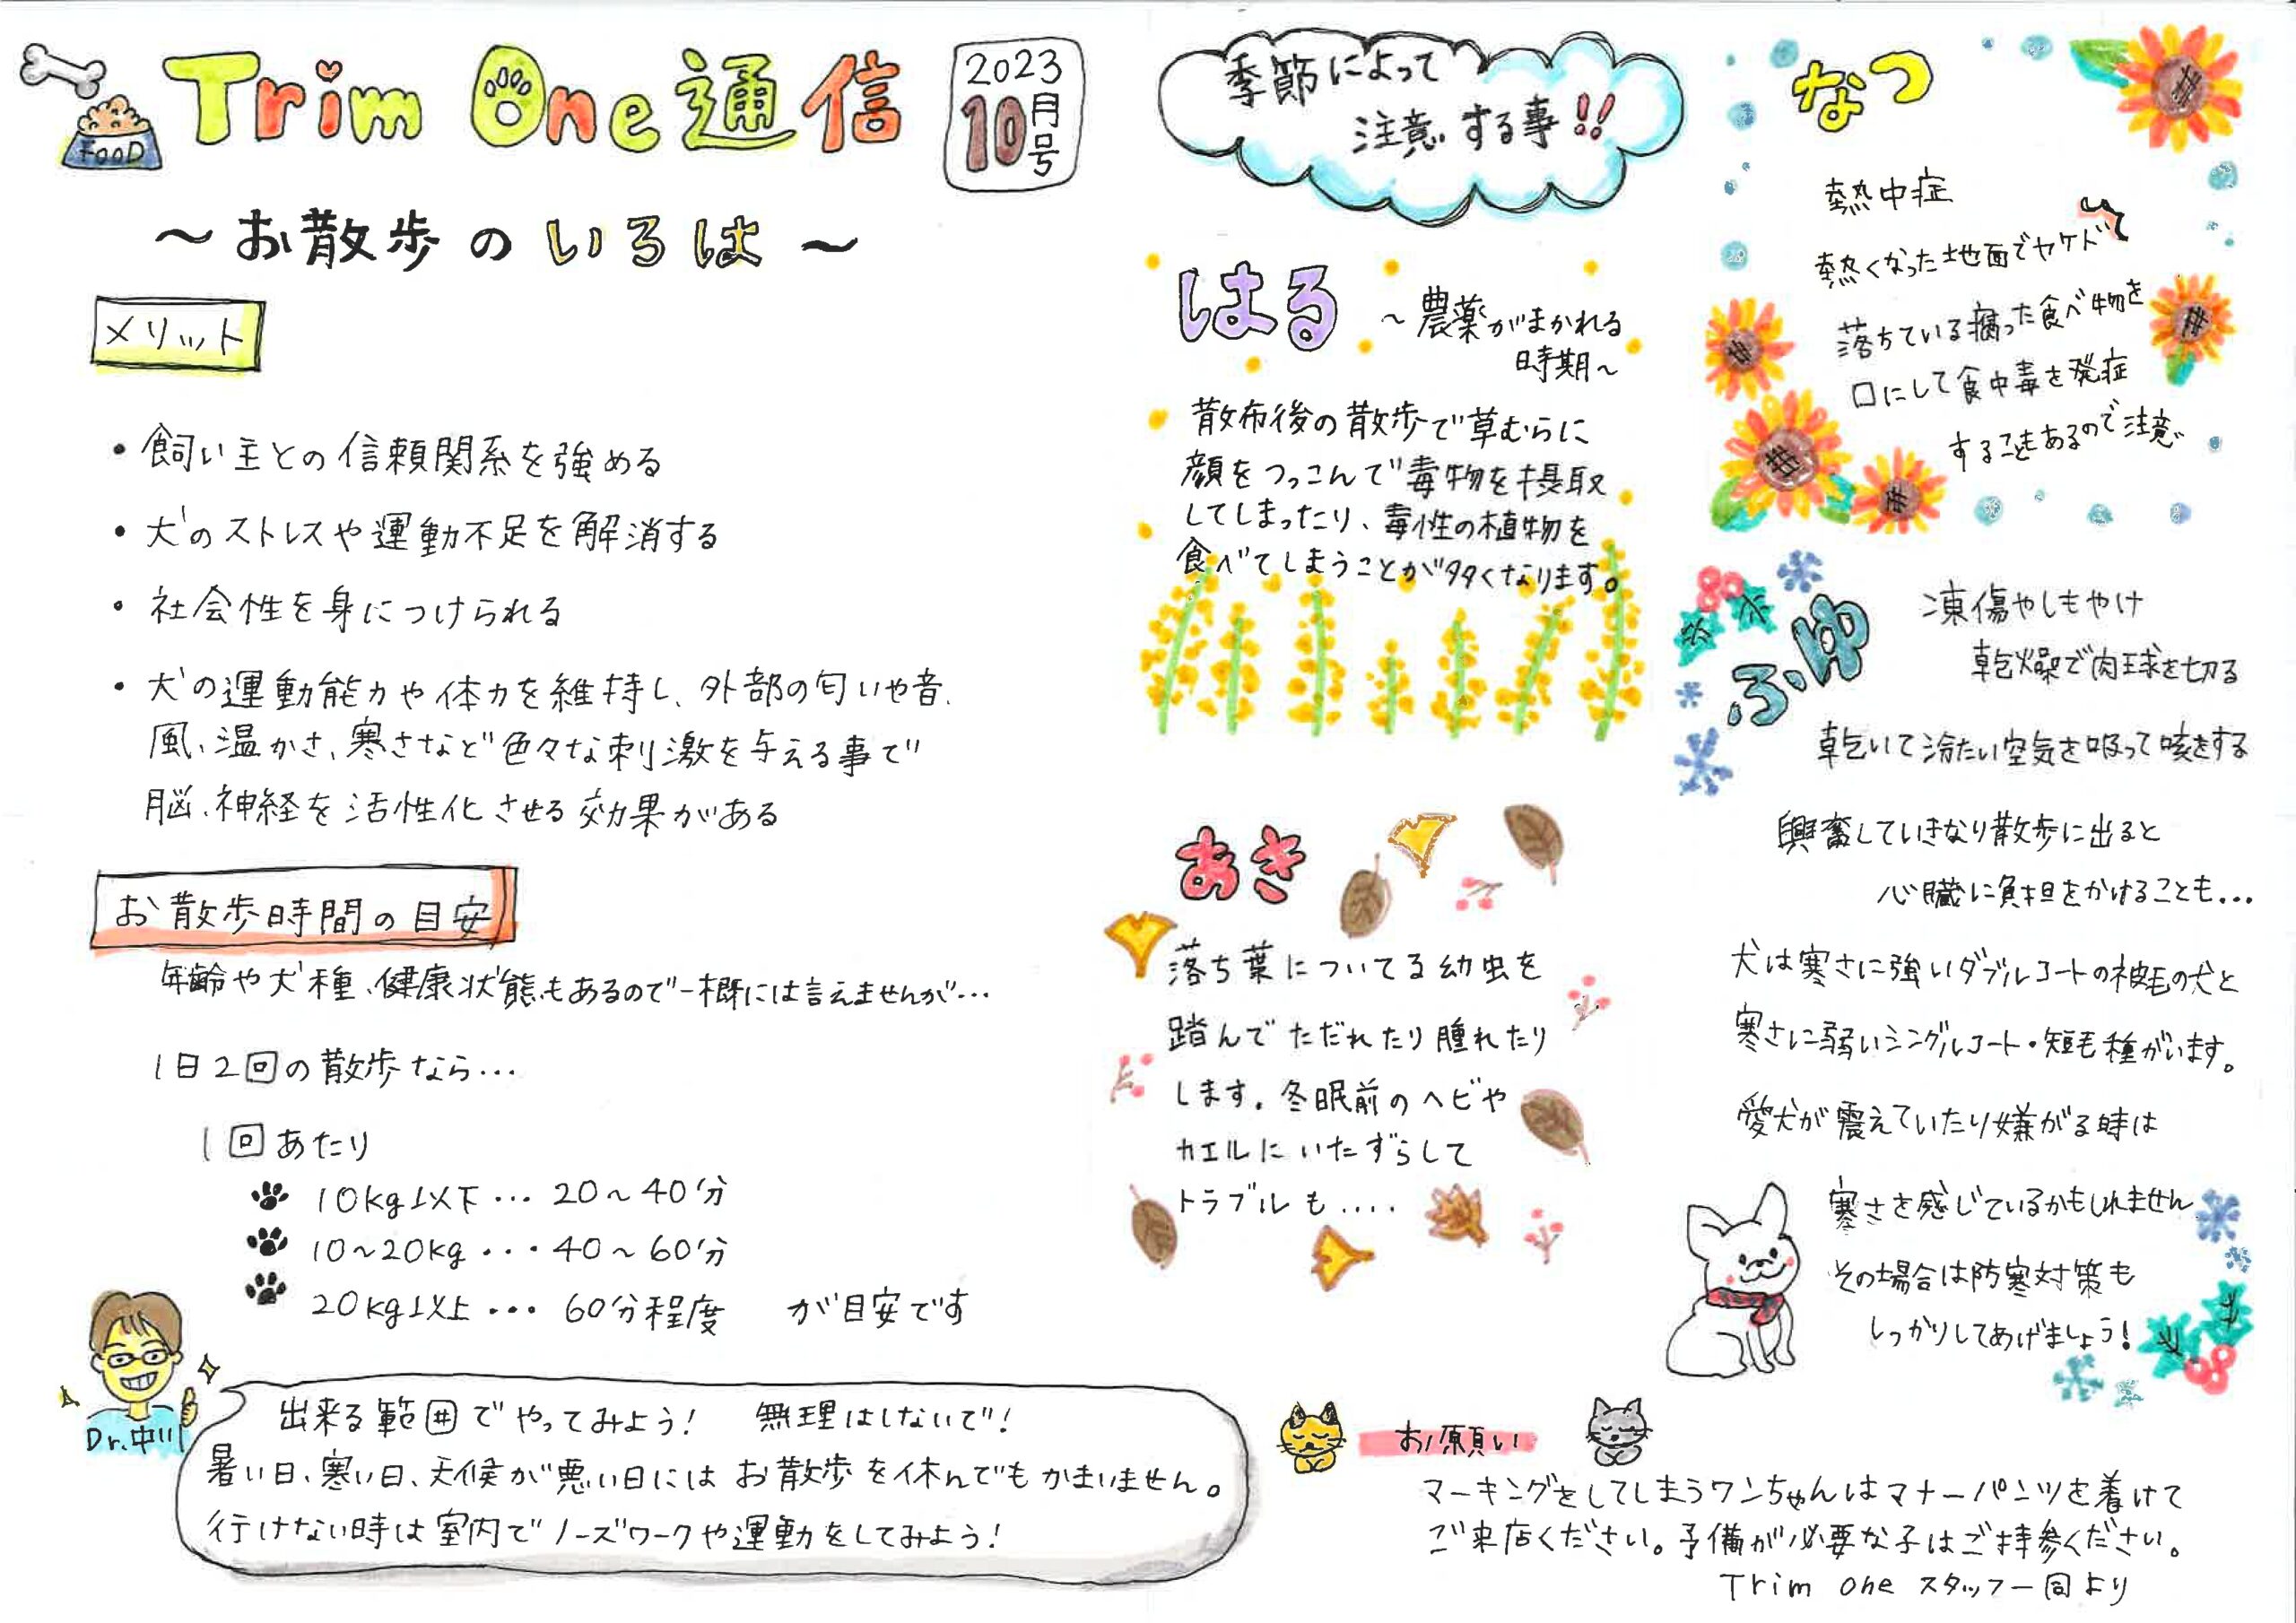 Trim One通信
2023
10月号
FOOD
～お散歩のいろは～
メリット
・飼い主との信頼関係を強める
・犬のストレスや運動不足を解消する
・社会性を身につけられる
・犬の運動能力や体力を維持し、外部の匂いや音、
風、温かさ、寒さなど色々な刺激を与える事で
脳、神経を活性化させる効果がある
お散歩時間の目安
年齢や犬種、健康状態もあるので一概には言えませんが…
1日2回の散歩なら…
1回あたり
10kg以下… 20～40分
10～20kg・・・40～60分
20kg以上… 60分程度 が目安です
Dr.中川
出来る範囲でやってみよう! 無理はしないで!
暑い日、寒い日、天候が悪い日にはお散歩を休んでもかまいません。
行けない時は室内でノーズワークや運動をしてみよう!
季節によって
注意する事!!
はる
～農薬がまかれる
時期～
散布後の散歩で草むらに
顔をつっこんで毒物を摂取
してしまったり、毒性の植物を
食べてしまうことが多くなります。
あき
落ち葉についてる幼虫を
踏んでただれたり腫れたり
します。冬眠前のヘビや
カエルにいたずらして
トラブルも....
なつ
熱中症
熱くなった地面でヤケド
落ちている腐った食べ物を
口にして食中毒を発症
することもあるので注意
ふゆ
凍傷やしもやけ
乾燥で肉球を切る
乾いて冷たい空気を吸って咳をする
興奮していきなり散歩に出ると
心臓に負担をかけることも…
犬は寒さに強いダブルコートの被毛の犬と
寒さに弱いシングルコート・短毛種がいます。
愛犬が震えていたり嫌がる時は
寒さを感じているかもしれません
その場合は防寒対策も
しっかりしてあげましょう!
お願い
マーキングをしてしまうワンちゃんはマナーパンツを着けて
ご来店ください。予備が必要な子はご持参ください。
Trim One スタッフ一同より